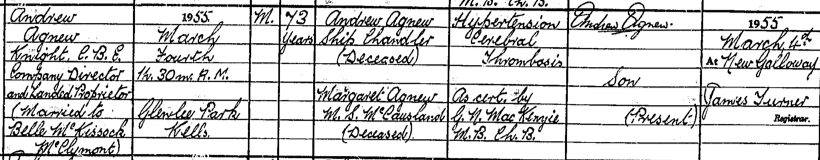 M. B. Ch. B.
Andrew
Agnew
Knight, C. B. E.
Company Director
and Landed Proprietor
(Married to
Belle McKissock
McClymont)
1955
March
Fourth
1h. 30m. A. M.
Glenlee Park
Kells
M.
73
Years
Andrew Agnew
Ship Chandler
(Deceased)
Margaret Agnew
M. S. McCausland
(Deceased)
Hypertension
Cerebral
Thrombosis
As cert. by
G. N. MacKenzie
M. B. Ch. B.
Andrew Agnew.
Son
(Present)
1955
March 4th
At New Galloway
James Turner
Registrar.